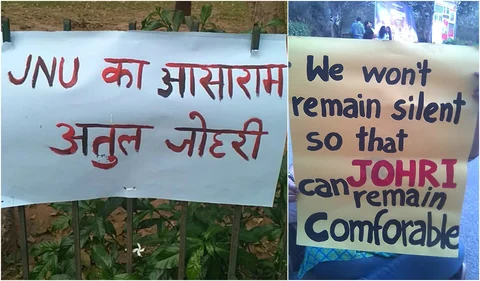 JNU का आसाराम
अतुल जोहरी
We won't
remain silent
so that
JOHRI
can remain
Comforable